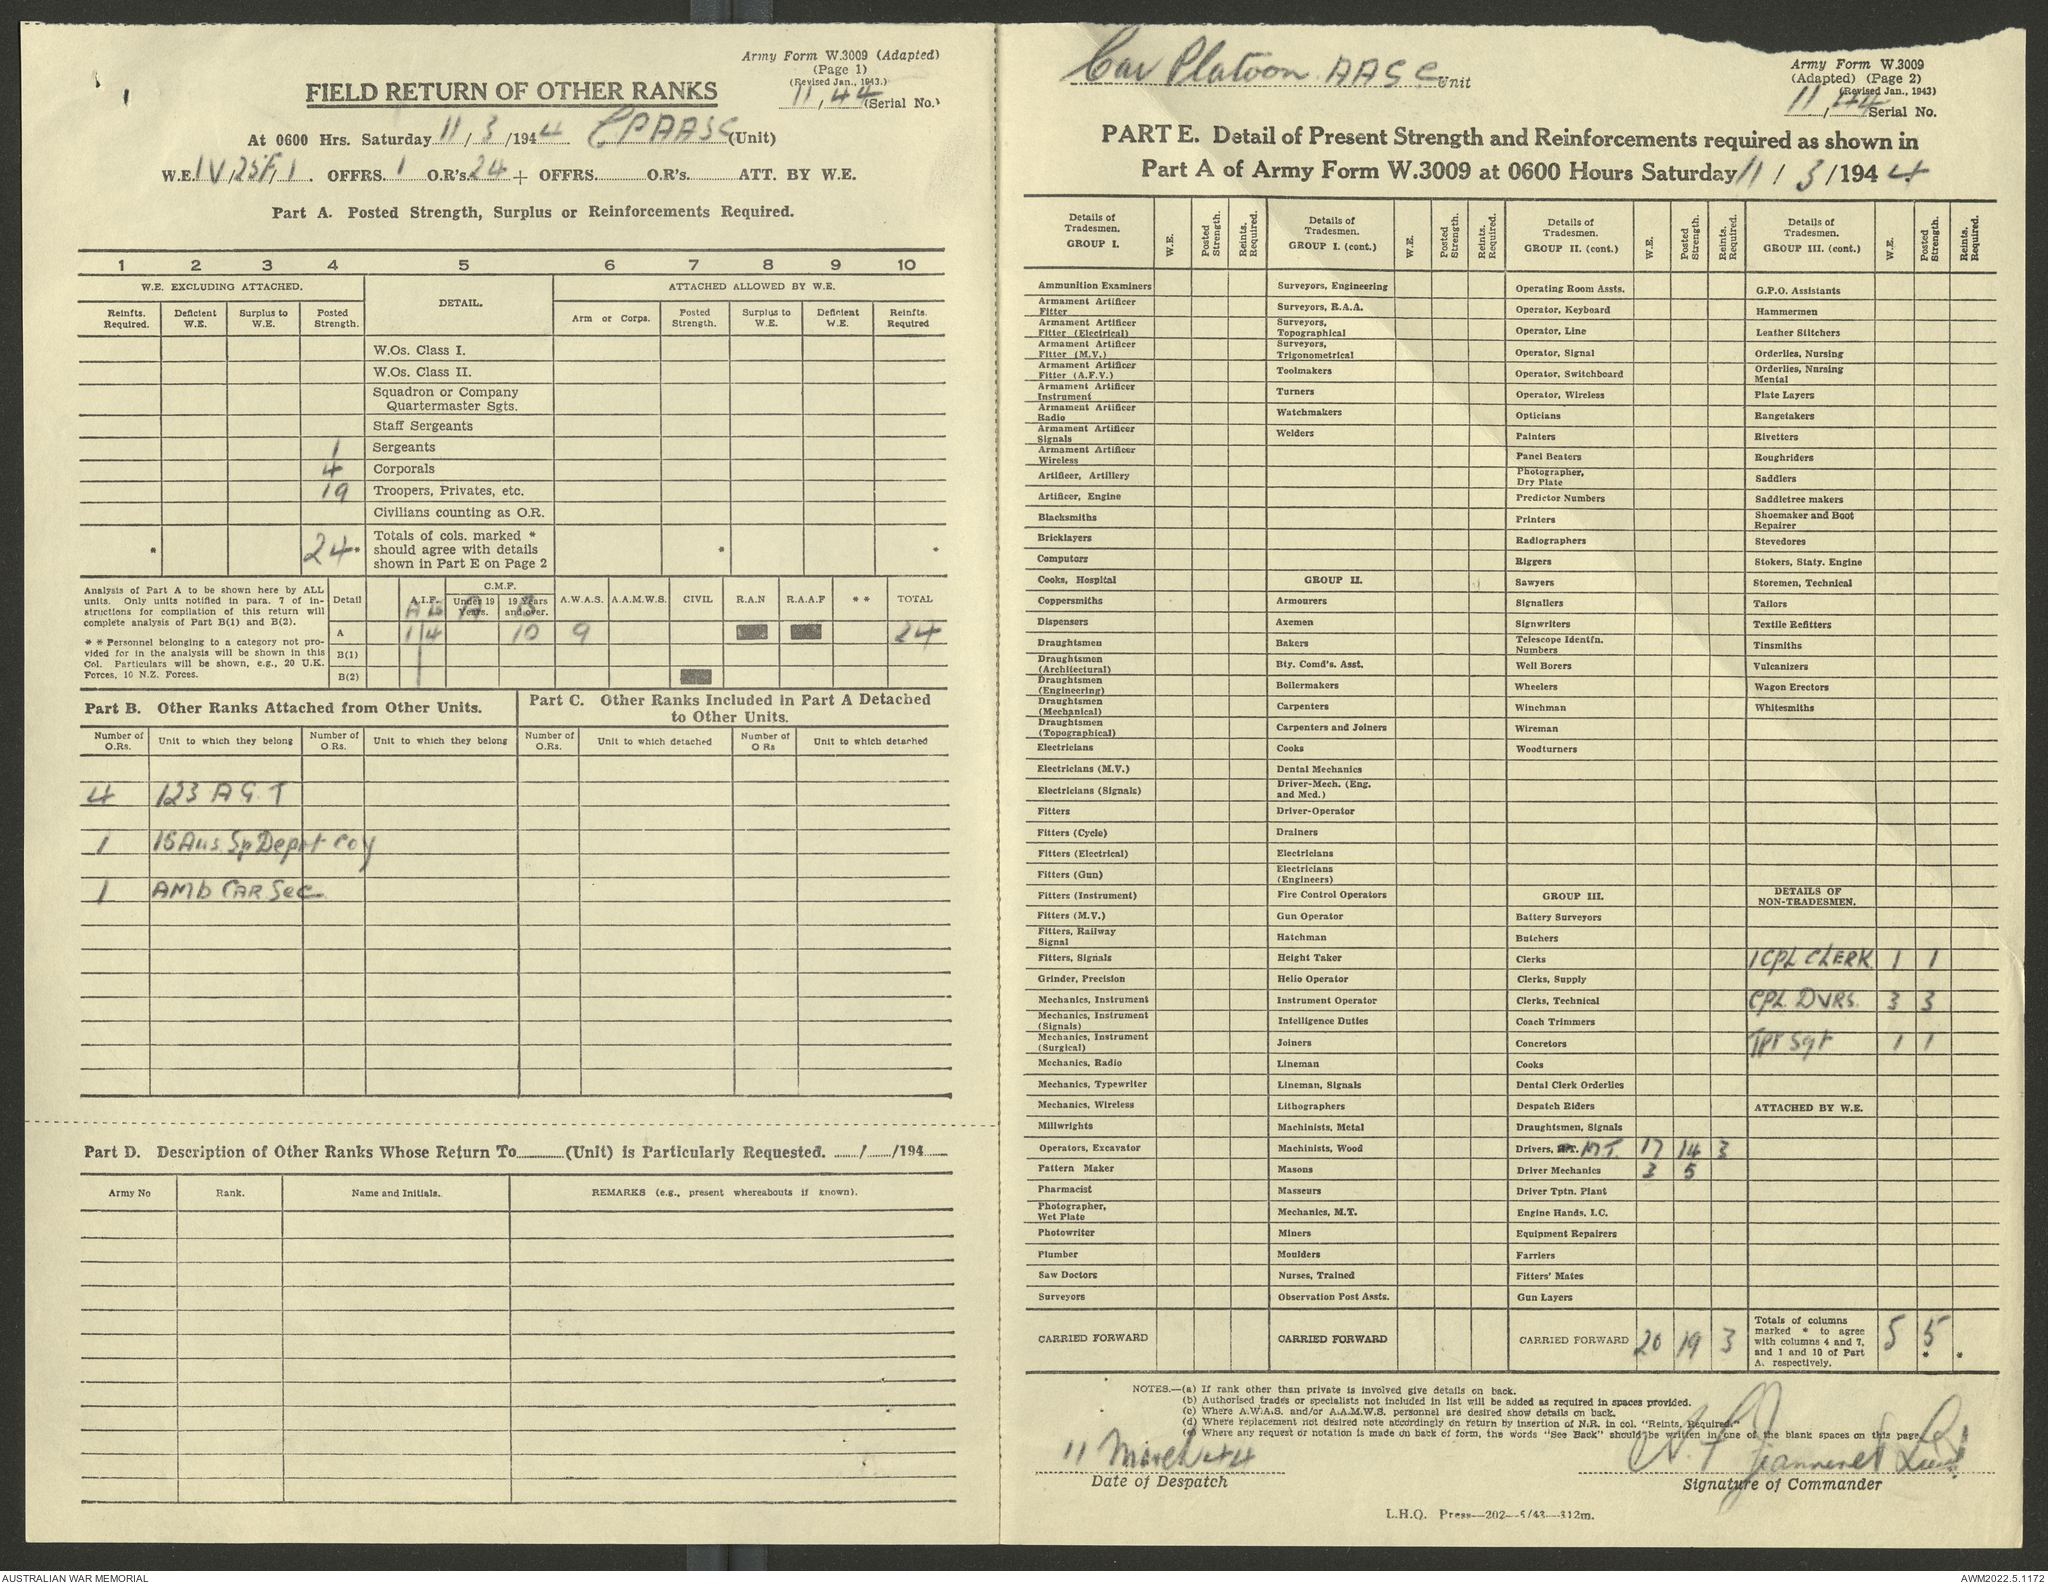 Army Form W.3009 (Adapted)
(Page 1)
(Revised Jan., 1943.)
11, 44 (Serial No.)
1
FIELD RETURN OF OTHER RANKS
At 0600 Hrs. Saturday 11/3/1944 CPAASC (Unit)
W.E. IV,25F,1. OFFRS. 1 O.R's. 24 + OFFRS. O.R's. ATT. BY W.E.
Part A. Posted Strength, Surplus or Reinforcements Required.
1 2 3 4 5 6 7 8 9 10
W.E. EXCLUDING ATTACHED. DETAIL. ATTACHED ALLOWED BY W.E.
Reinfts. Required. Deficient W.E. Surplus to W.E. Posted Strength. Arm or Corps. Posted Strength. Surplus to W.E. Deficient W.E. Reinfts. Required
W.Os. Class I.
W.Os. Class II.
Squadron or Company
Quartermaster Sgts.
Staff Sergeants
1 Sergeants
4 Corporals
19 Troopers, Privates, etc.
Civilians counting as O.R.
* 24* Totals of cols. marked * should agree with details shown in Part E on Page 2 * *
Analysis of Part A to be shown here by ALL
units. Only units notified in para. 7 of in-
structions for compilation of this return will
complete analysis of Part B(1) and B(2).
* * Personnel belonging to a category not pro-
vided for in the analysis will be shown in this
Col. Particulars will be shown, e.g., 20 U.K.
Forces, 10 N.Z. Forces.
Detail A.I.F. C.M.F. Under 19 Years. 19 Years and over. A.W.A.S. A.A.M.W.S. CIVIL R.A.N R.A.A.F * * TOTAL
A 1 4 10 9 24
B(1)
B(2)
Part B. Other Ranks Attached from Other Units.
Number of O.Rs. Unit to which they belong Number of O.Rs. Unit to which they belong
4 123 A G. T
1 15 Aus. Sp Depot coy
1 AMb CAR Sec
Part C. Other Ranks Included in Part A Detached
to Other Units.
Number of O.Rs. Unit to which detached Number of O Rs Unit to which detached
Part D. Description of Other Ranks Whose Return To (Unit) is Particularly Requested. / /194
Army No Rank. Name and Initials. REMARKS (e.g., present whereabouts if known).
Car Platoon AASC Unit
Army Form W.3009
(Adapted) (Page 2)
(Revised Jan., 1943)
11, 44 Serial No.
PART E. Detail of Present Strength and Reinforcements required as shown in
Part A of Army Form W.3009 at 0600 Hours Saturday 11/3/1944
Details of Tradesmen. GROUP I. W.E. Posted Strength. Reints. Required.
Ammunition Examiners
Armament Artificer Fitter
Armament Artificer Fitter (Electrical)
Armament Artificer Fitter (M.V.)
Armament Artificer Fitter (A.F.V.)
Armament Artificer Instrument
Armament Artificer Radio
Armament Artificer Signals
Armament Artificer Wireless
Artificer, Artillery
Artificer, Engine
Blacksmiths
Bricklayers
Computors
Cooks, Hospital
Coppersmiths
Dispensers
Draughtsmen
Draughtsmen (Architectural)
Draughtsmen (Engineering)
Draughtsmen (Mechanical)
Draughtsmen (Topographical)
Electricians
Electricians (M.V.)
Electricians (Signals)
Fitters
Fitters (Cycle)
Fitters (Electrical)
Fitters (Gun)
Fitters (Instrument)
Fitters (M.V.)
Fitters, Railway Signal
Fitters, Signals
Grinder, Precision
Mechanics, Instrument
Mechanics, Instrument (Signals)
Mechanics, Instrument (Surgical)
Mechanics, Radio
Mechanics, Typewriter
Mechanics, Wireless
Millwrights
Operators, Excavator
Pattern Maker
Pharmacist
Photographer, Wet Plate
Photowriter
Plumber
Saw Doctors
Surveyors
CARRIED FORWARD
Details of Tradesmen. GROUP I. (cont.) W.E. Posted Strength. Reints. Required.
Surveyors, Engineering
Surveyors, R.A.A.
Surveyors, Topographical
Surveyors, Trigonometrical
Toolmakers
Turners
Watchmakers
Welders
GROUP II.
Armourers
Axemen
Bakers
Bty. Comd's. Asst.
Boilermakers
Carpenters
Carpenters and Joiners
Cooks
Dental Mechanics
Driver-Mech. (Eng. and Med.)
Driver-Operator
Drainers
Electricians
Electricians (Engineers)
Fire Control Operators
Gun Operator
Hatchman
Height Taker
Helio Operator
Instrument Operator
Intelligence Duties
Joiners
Lineman
Lineman, Signals
Lithographers
Machinists, Metal
Machinists, Wood
Masons
Masseurs
Mechanics, M.T.
Miners
Moulders
Nurses, Trained
Observation Post Assts.
CARRIED FORWARD
Details of Tradesmen. GROUP II. (cont.) W.E. Posted Strength. Reints. Required.
Operating Room Assts.
Operator, Keyboard
Operator, Line
Operator, Signal
Operator, Switchboard
Operator, Wireless
Opticians
Painters
Panel Beaters
Photographer, Dry Plate
Predictor Numbers
Printers
Radiographers
Riggers
Sawyers
Signallers
Signwriters
Telescope Identfn. Numbers
Well Borers
Wheelers
Winchman
Wireman
Woodturners
GROUP III.
Battery Surveyors
Butchers
Clerks
Clerks, Supply
Clerks, Technical
Coach Trimmers
Concretors
Cooks
Dental Clerk Orderlies
Despatch Riders
Draughtsmen, Signals
Drivers, M.T. 17 14 3
Driver Mechanics 3 5
Driver Tptn. Plant
Engine Hands, I.C.
Equipment Repairers
Farriers
Fitters' Mates
Gun Layers
CARRIED FORWARD 20 19 3
Details of Tradesmen. GROUP III. (cont.) W.E. Posted Strength. Reints. Required.
G.P.O. Assistants
Hammermen
Leather Stitchers
Orderlies, Nursing
Orderlies, Nursing Mental
Plate Layers
Rangetakers
Rivetters
Roughriders
Saddlers
Saddletree makers
Shoemaker and Boot Repairer
Stevedores
Stokers, Staty. Engine
Storemen, Technical
Tailors
Textile Refitters
Tinsmiths
Vulcanizers
Wagon Erectors
Whitesmiths
DETAILS OF
NON-TRADESMEN.
1 CPL CLERK 1 1
CPL DVRS. 3 3
TPT Sgt 1 1
ATTACHED BY W.E.
Totals of columns marked * to agree with columns 4 and 7, and 1 and 10 of Part A. respectively. 5 5 * *
NOTES.—(a) If rank other than private is involved give details on back.
(b) Authorised trades or specialists not included in list will be added as required in spaces provided.
(c) Where A.W.A.S. and/or A.A.M.W.S. personnel are desired show details on back.
(d) Where replacement not desired note accordingly on return by insertion of N.R. in col. "Reints. Required."
(e) Where any request or notation is made on back of form, the words "See Back" should be written in one of the blank spaces on this page
11 March 44
Date of Despatch
Jeanneret Lieut
Signature of Commander
L.H.Q. Press—202—5/43—812m.
AUSTRALIAN WAR MEMORIAL
AWM2022.5.1172